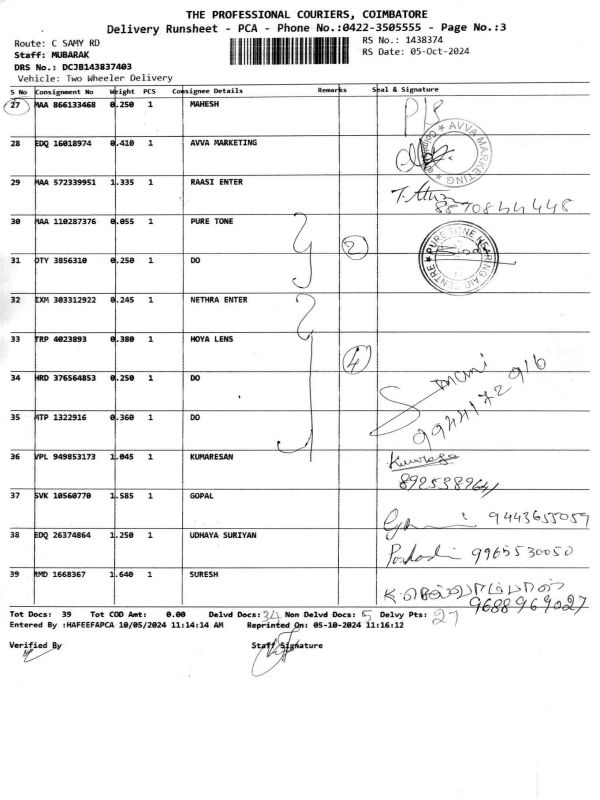 THE PROFESSIONAL COURIERS, COIMBATORE
Delivery Runsheet - PCA - Phone No.:0422-3505555 - Page No.:3
Route: C SAMY RD
RS No.: 1438374
Staff: MUBARAK
RS Date: 05-Oct-2024
DRS No.: DCJB143837403
Vehicle: Two Wheeler Delivery
S No Consignment No Weight PCS Consignee Details Remarks Seal & Signature
27 MAA 866133468 0.250 1 MAHESH
28 EDQ 16018974 0.410 1 AVVA MARKETING
AVVA MARKETING
29 MAA 572339951 1.335 1 RAASI ENTER
8870844448
30 MAA 110287376 0.055 1 PURE TONE
2
PURE TONE HEARING AID CENTRE
31 OTY 3856310 0.250 1 DO
32 EXM 303312922 0.245 1 NETHRA ENTER
33 TRP 4023893 0.380 1 HOYA LENS
4
34 HRD 376564853 0.250 1 DO
mani
9944172916
35 MTP 1322916 0.360 1 DO
36 VPL 949853173 1.045 1 KUMARESAN
8925389641
37 SVK 10560770 1.585 1 GOPAL
9443655059
38 EDQ 26374864 1.250 1 UDHAYA SURIYAN
9965530050
39 RMD 1668367 1.640 1 SURESH
9688969027
Tot Docs: 39 Tot COD Amt: 0.00 Delvd Docs: 34 Non Delvd Docs: 5 Delvy Pts: 27
Entered By :HAFEEFAPCA 10/05/2024 11:14:14 AM Reprinted On: 05-10-2024 11:16:12
Verified By Staff Signature